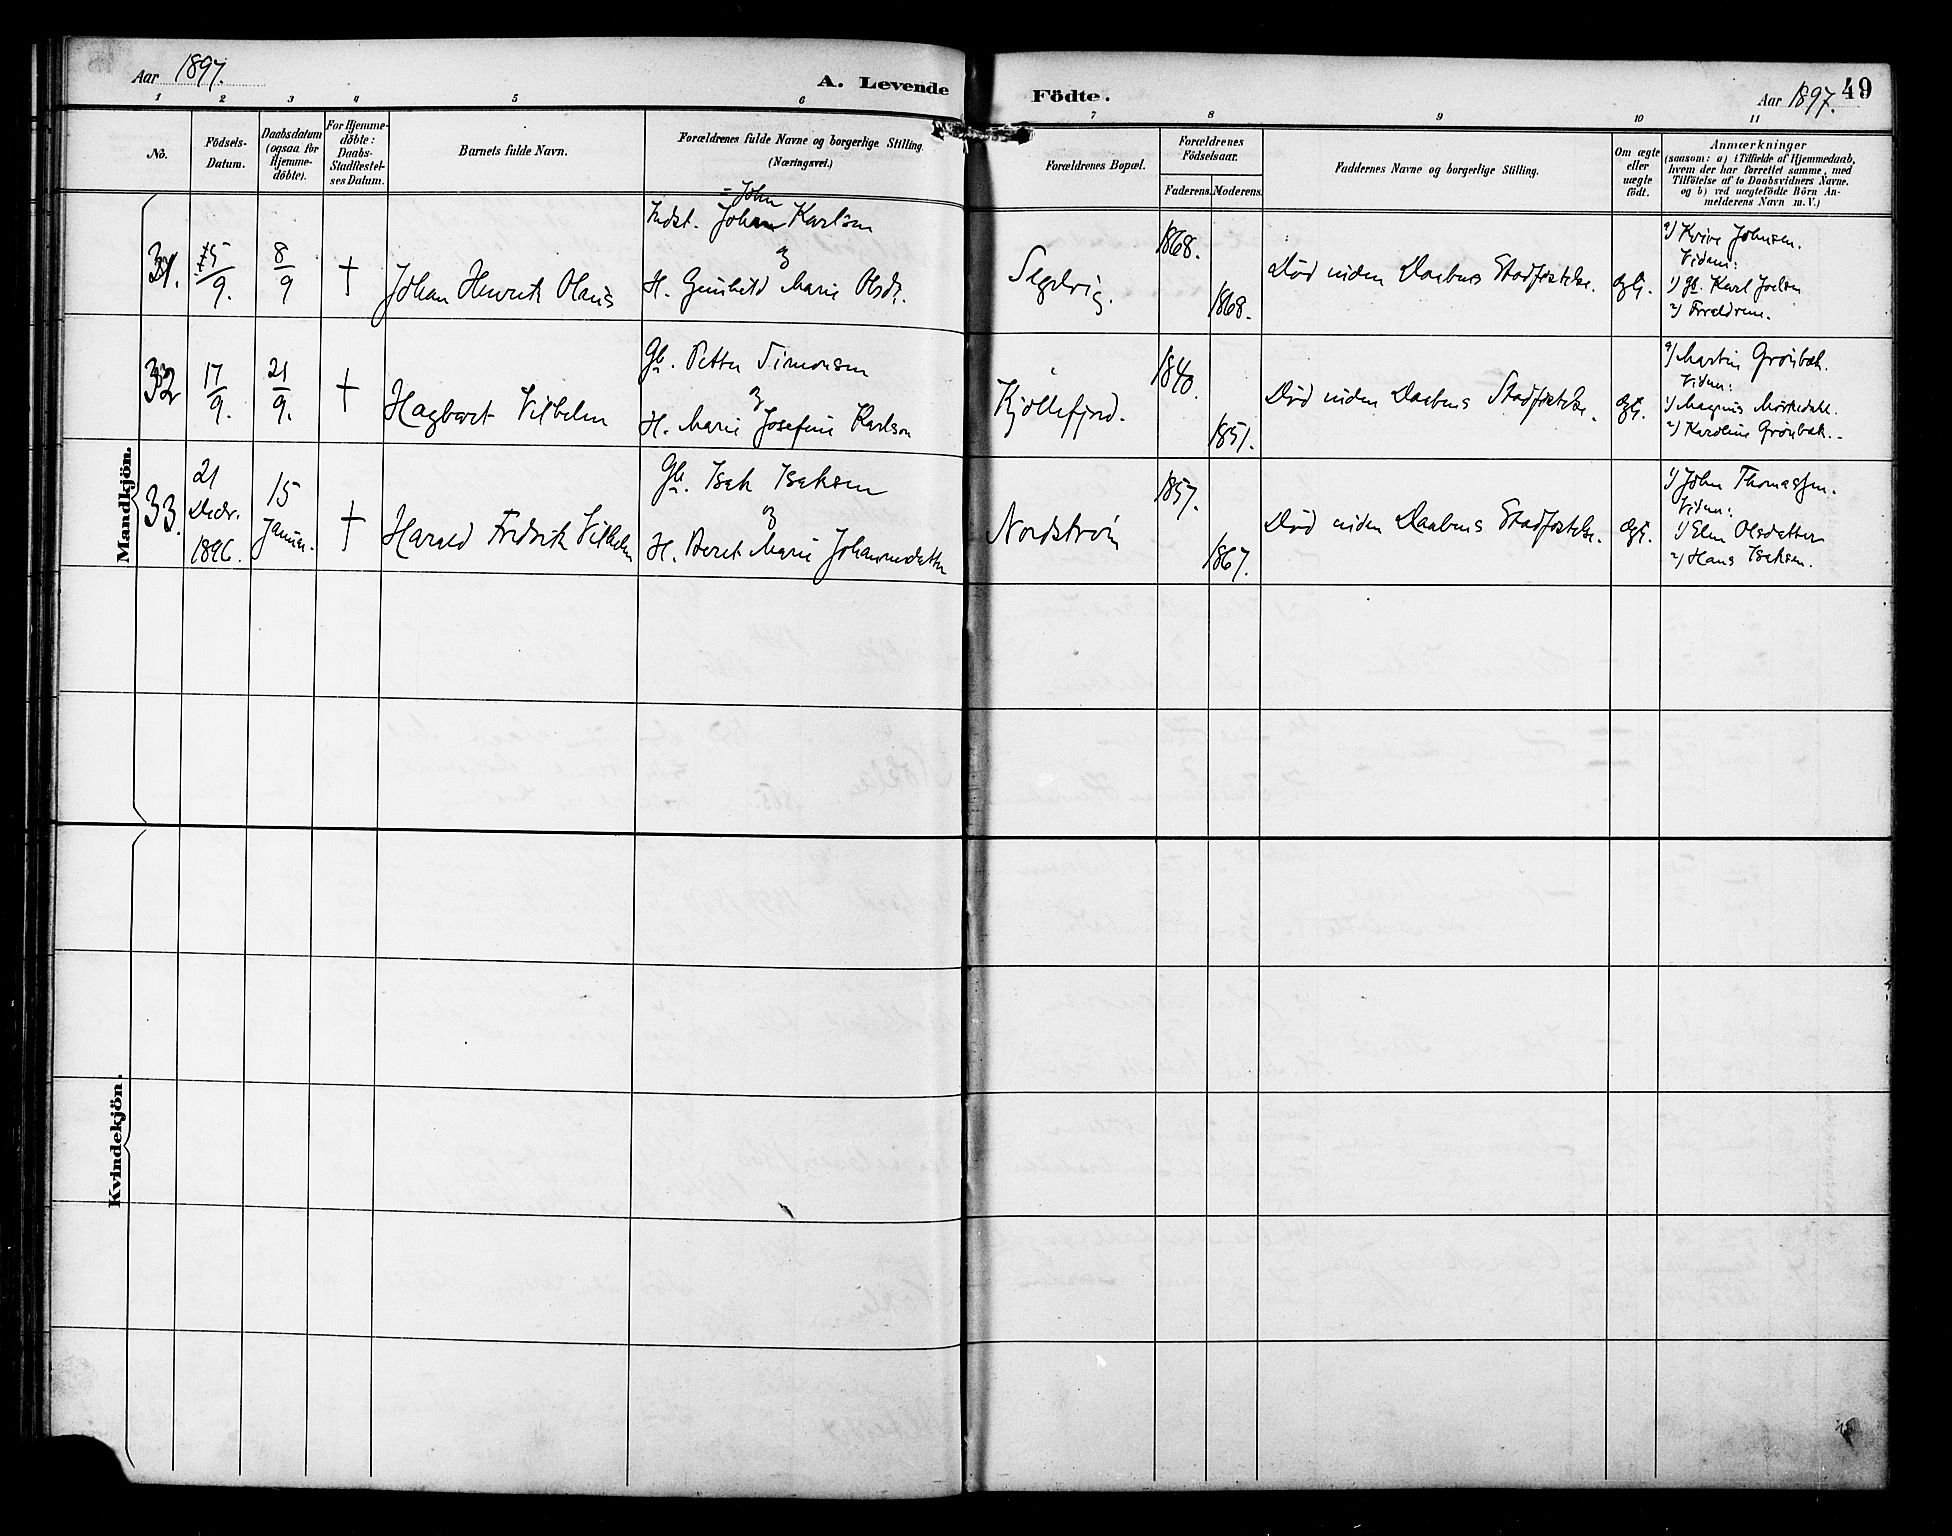 Aar 1897.
A. Levende
Födte.
Aar 1897.
49
1 2 3 4 5 6 7 8 9 10 11
No.
Födsels-
Datum.
Daabsdatum
(ogsaa for
Hjemme-
döbte).
For Hjemme-
döbte:
Daabs-
Stadfæstel-
ses Datum.
Barnets fulde Navn.
Forældrenes fulde Navne og borgerlige Stilling.
(Næringsvei.)
Forældrenes Bopæl.
Forældrenes
Födselsaar.
Faderens. Moderens.
Faddernes Navne og borgerlige Stilling.
Om ægte
eller
uægte
födt.
Anmærkninger
(saasom: a) i Tilfælde af Hjemmedaab,
hvem der har forrettet samme, med
Tilföielse af to Daabsvidners Navne,
og b) ved uægtefödte Börn An-
melderens Navn m. V.)
Mandkjön.
31.
5/9.
8/9
†
Johan Henrik Olaus
John
Indst. Johan Karlsen
og
H. Gunhild Marie Olsdt.
1868.
1868.
Død inden Daabens Stadfæstelse.
ægte.
Johnsen.
Vidner:
1) Gb. Karl
2) Forældrene.
32
17/9.
21/9.
†
Hagbart Vilhelm
Gb. Petter Simonsen
og
H. Marie Josefine Karlson
Kjøllefjord.
1840.
1851.
Død inden Daabens Stadfæstelse.
ægte.
a) Martin Grønbæk.
Vidner:
1) Magnus Mørkedahl.
2) Karoline Grønbæk.
33.
21
Decbr.
1896.
15
Januar.
†
Harald Fredrik Vilhelm
Gb. Isak Isaksen
og
H. Beret Marie Johannesdatter
Nordstrøm
1857.
1867.
Død inden Daabens Stadfæstelse.
ægte.
1) John Thomassen.
Vidner:
1) Elen Olsdatter
2) Hans Isaksen.
Kvindekjön.